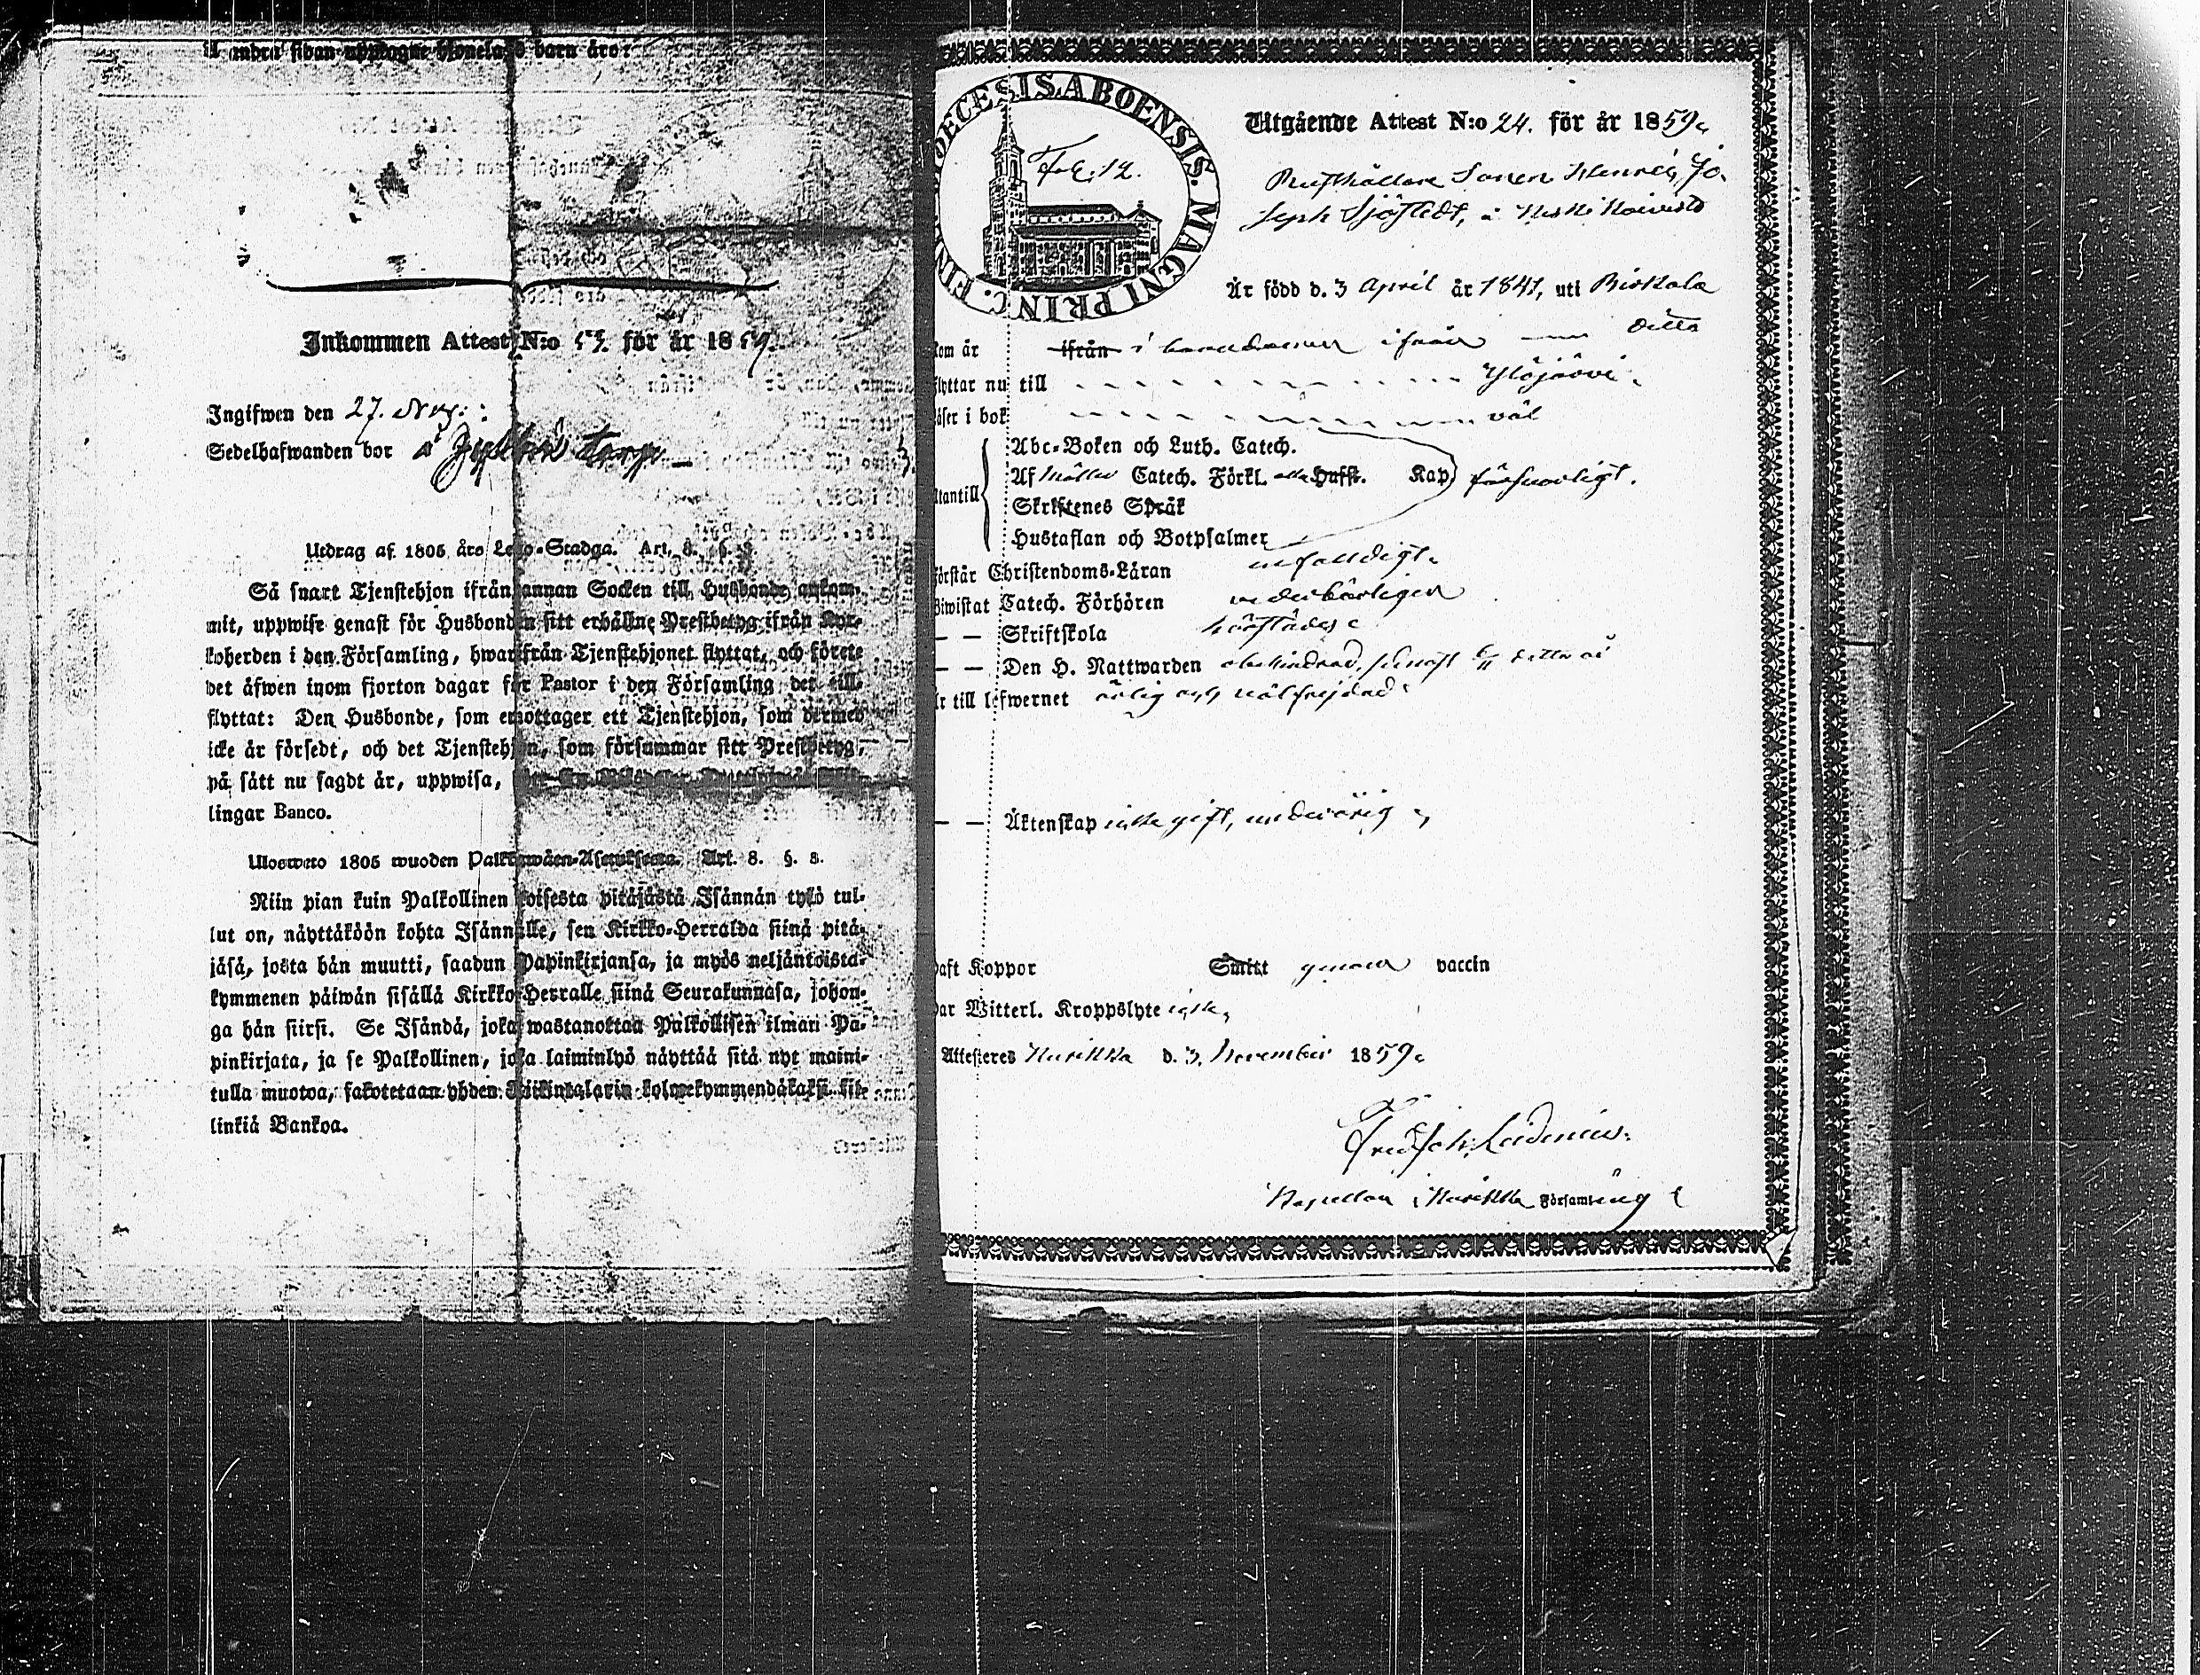 andra sidan upptagne hjonelag barn äro:
Inkommen Attest N:o 53. för år 1859.
Ingifwen den 27. Nov.:
Sedelhafwanden bor å torp
Utdrag af 1805 års Lego-Stadga. Art. 8. §. 8.
Så snart Tjenstehjon ifrån annan Socken till Husbonde ankom-
mit, uppwise genast för Husbonden sitt erhållne Prestbetyg ifrån Kyr-
koherden i den Församling, hwarifrån Tjenstehjonet flyttat, och förete
det äfwen inom fjorton dagar för Pastor i den Församling det till-
flyttat: Den Husbonde, som emottager ett Tjenstehjon, som dermed
icke är försedt, och det Tjenstehjon, som försummar sitt Prestbetyg,
på sätt nu sagdt är, uppwisa,
lingar Banco.
Ulosweto 1805 wuoden Palkkawäen-Asetuksesta. Art. 8. §. 8.
Niin pian kuin Palkollinen toisesta pitäjästä Isännän tykö tul-
lut on, näyttäköön kohta Isännälle, sen Kirkko-Herralda siinä pitä-
jäsä, josta hän muutti, saadun Papinkirjansa, ja myös neljäntoista-
kymmenen päiwän sisällä Kirkko-Herralle siinä Seurakunnasa, johon-
ga hän siirsi. Se Isändä, joka wastanottaa Palkollisen ilman Pa-
pinkirjata, ja se Palkollinen, joka laiminlyö näyttää sitä nyt maini-
tulla muotoa, sakotetaan yhden Riikintalarin kolmekymmendäkaksi kil-
linkiä Bankoa.
DIOECESIS ABOENSIS. MAGNI PRINC. FINL
Fol. 12.
Utgående Attest N:o 24. för år 1859.
Rusthållare Sonen Henric Jo-
seph Sjöstedt, å Keski Koivisto
Är född d. 3 April år 1841, uti Birkala
kom år ifrån i barndomen ifrån ditto
flyttar nu till Ylöjärvi.
läser i bok väl
Utantill
Abc-Boken och Luth. Catech.
Af Möller Catech. Förkl. alla Hufst. Kap. försvarligt.
Skriftenes Språk
Hustaflan och Botpsalmer
förstår Christendoms-Läran enfaldigt.
Biwistat Catech. Förhören vederbörligen
— — Skriftskola härstädes
— — Den H. Nattwarden obehindrad, senast ditto år
Är till lefwernet ärlig och välfrejdad
— — Äktenskap icke gift, undervårig
Haft Koppor Smitt genom vaccin
Har Witterl. Kroppslyte icke,
Attesteres Harikka d. 3. November 1859.
Kapellan i Harikka Församling